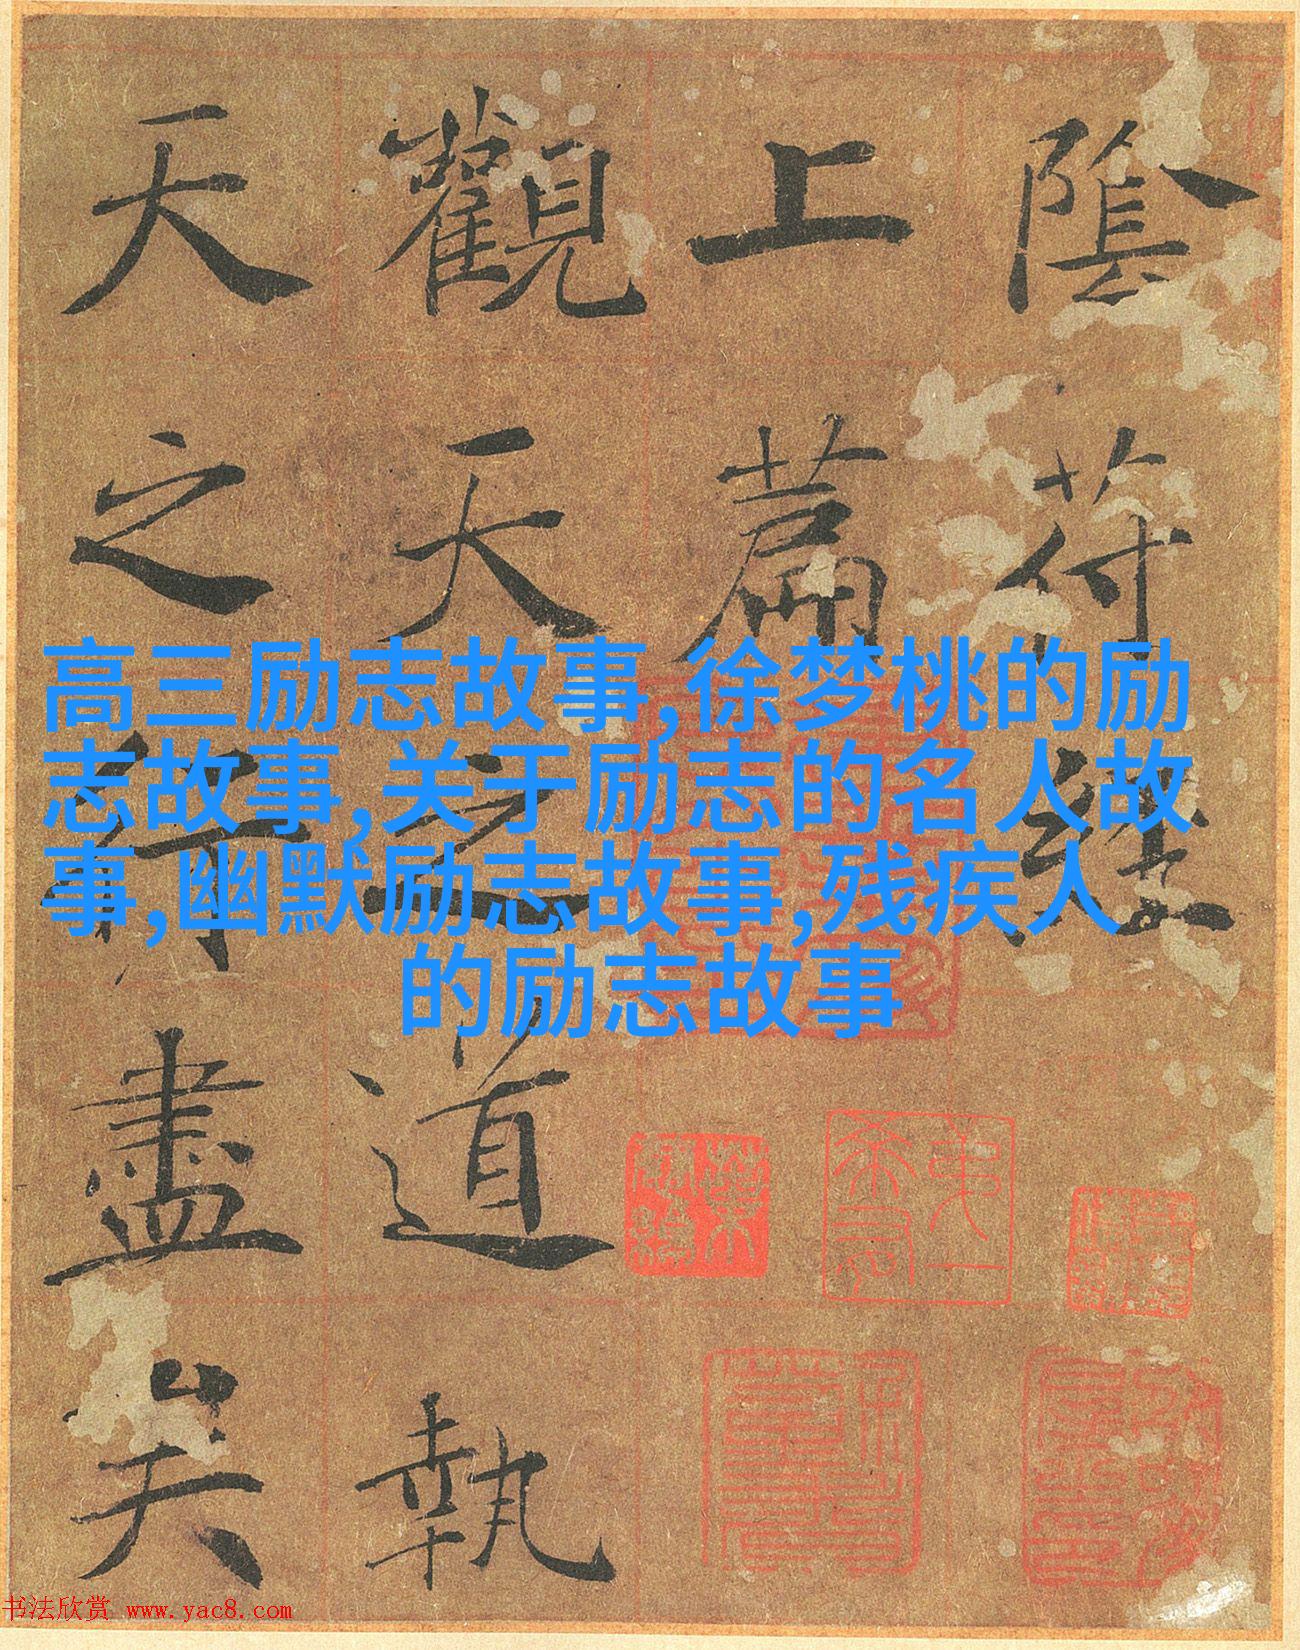 陰符經
上篇
觀天之道執
天之行盡矣
高三励志故事,徐梦桃的励
志故事,关于励志的名人故
事,幽默励志故事,残疾人
的励志故事
书法欣赏 www.yac8.com